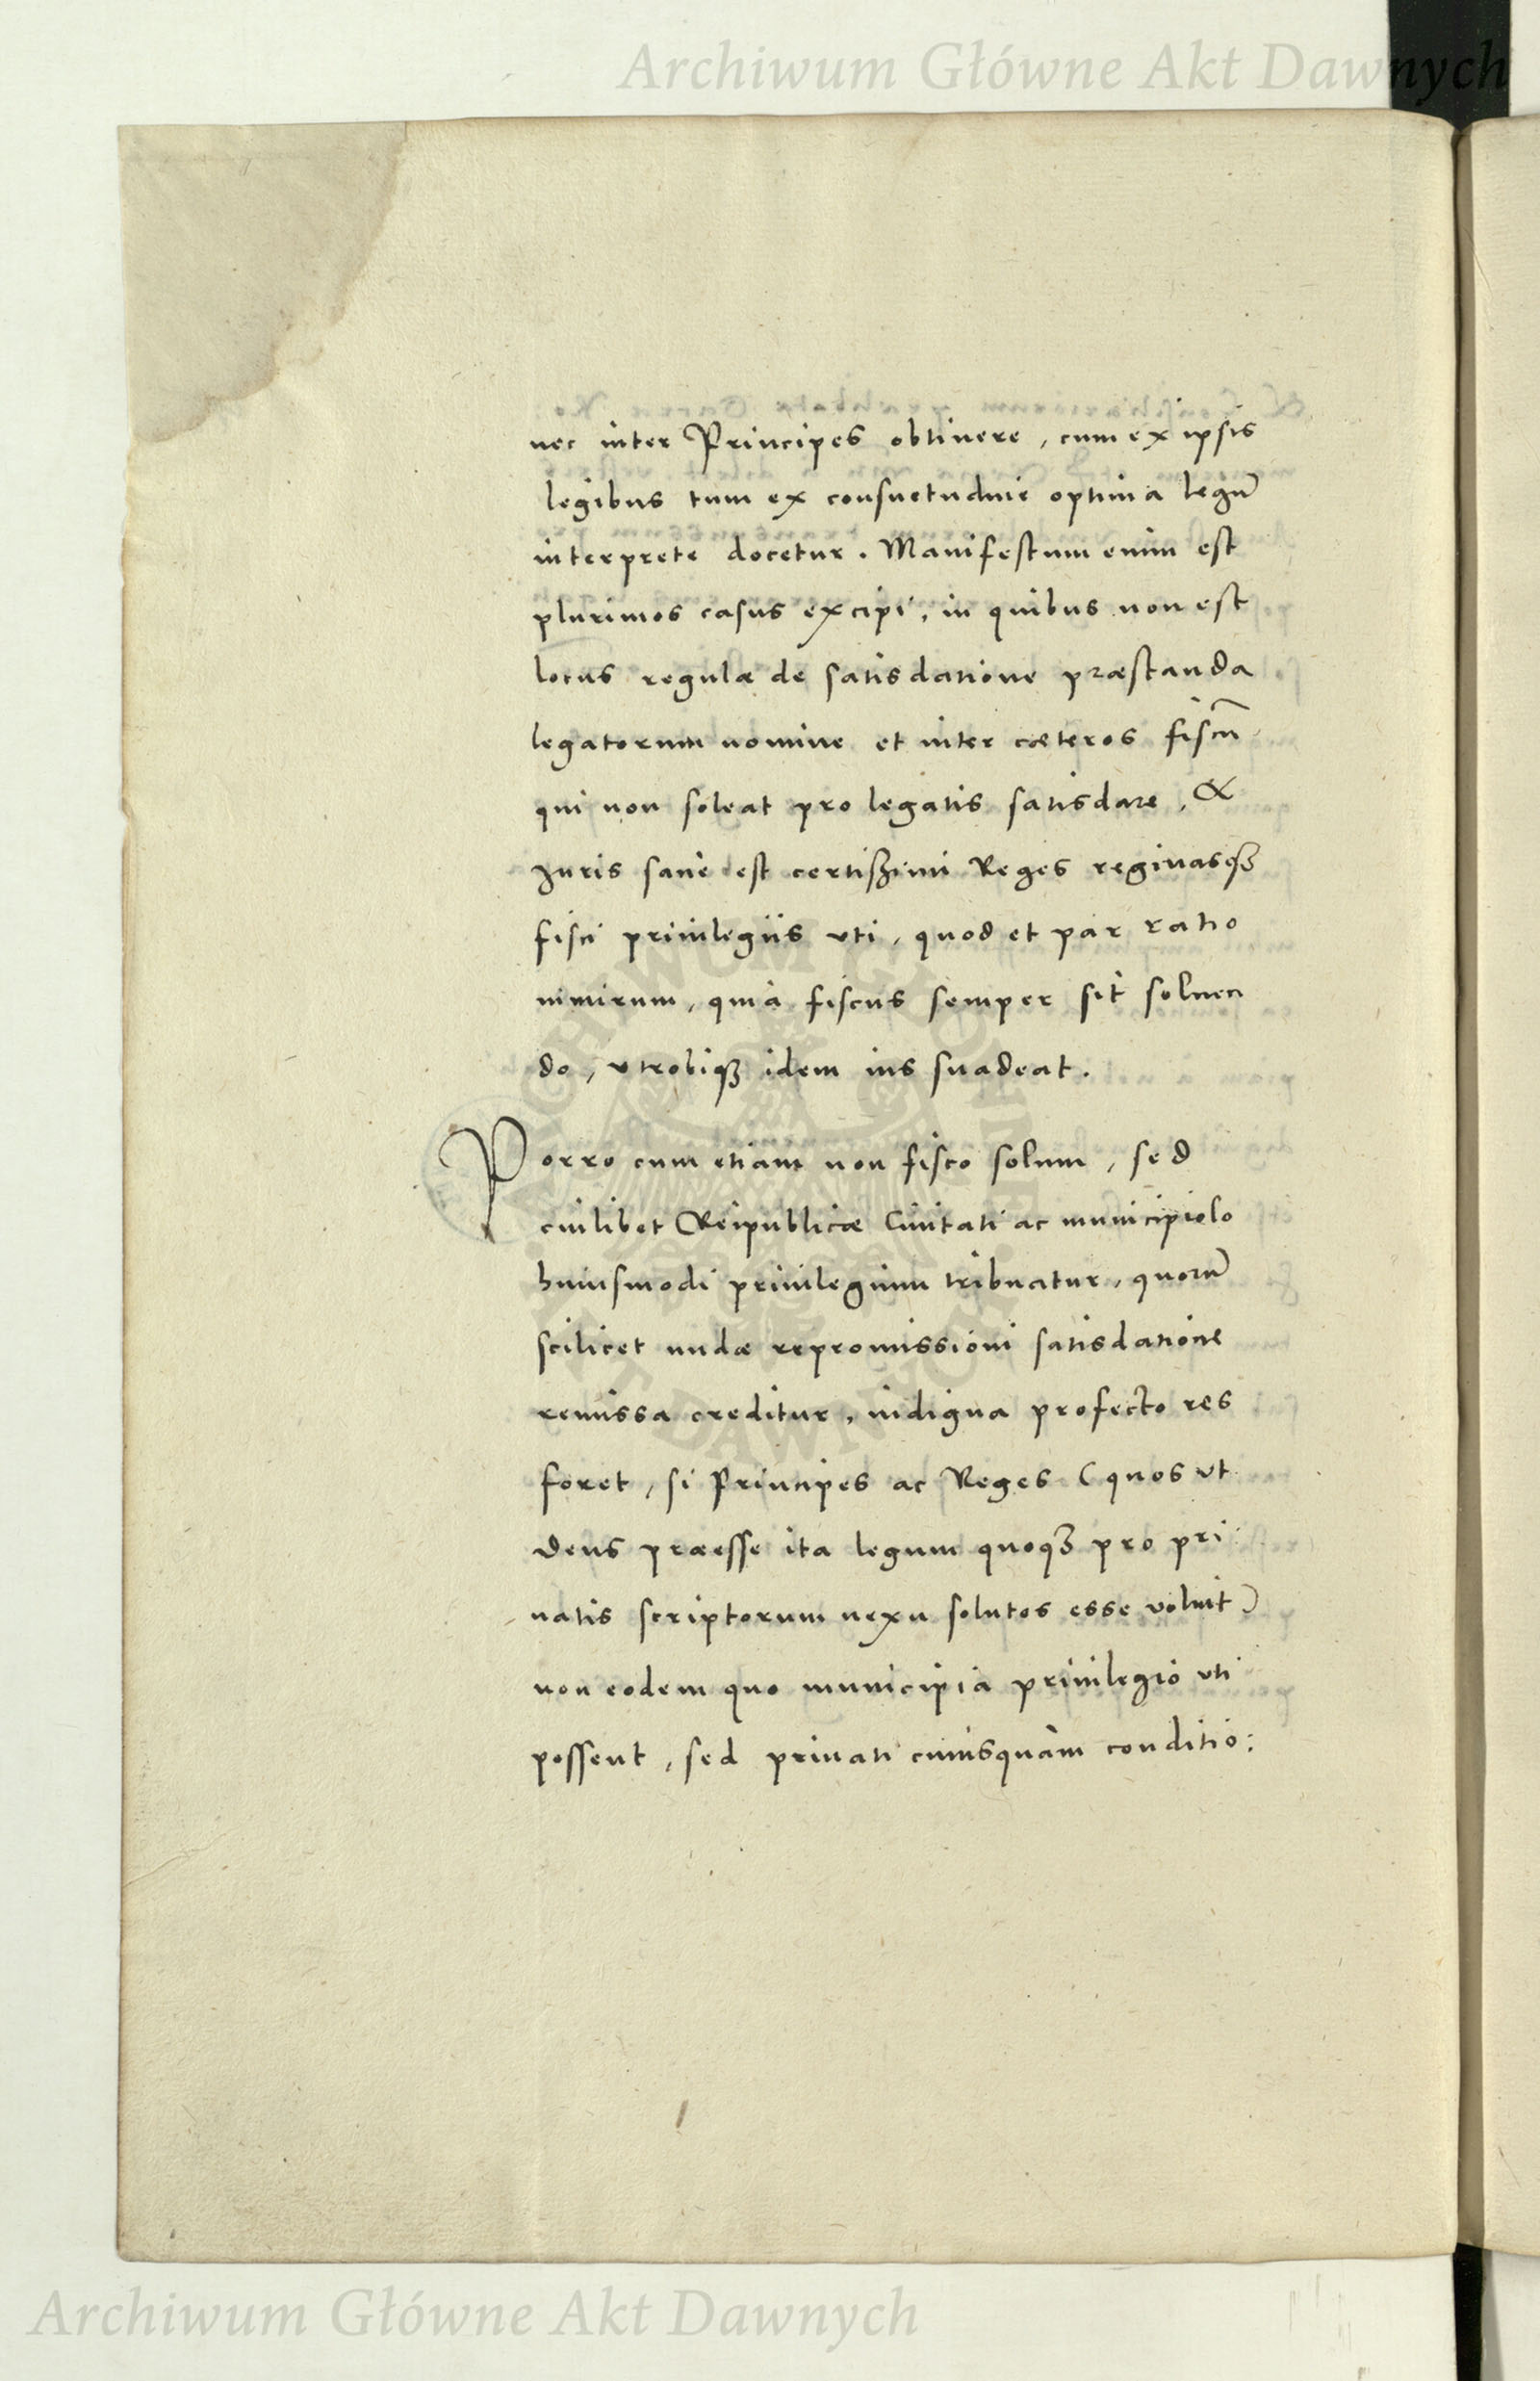 Archiwum Główne Akt Dawnych
nec inter Principes obtinere, cum ex ipsis
legibus tum ex consuetudine optima legũ
interprete docetur. Manifestum enim est
plurimos casus excipi, in quibus non est
locus regulæ de satisdatione præstanda
legatorum nomine et inter cæteros fiscũ
qui non soleat pro legatis satisdare, &
Juris sane est certißimi Reges reginasqȝ
fisci priuilegiis vti, quod et par ratio
nimirum, quia fiscus semper sit soluen
do, vtrobiqȝ idem ius suadeat.
Porro cum etiam non fisco solum, sed
cuilibet Reipublicæ Ciuitati ac municipiolo
huiusmodi priuilegium tribuatur, quorũ
scilicet nudæ repromissioni satisdatione
remissa creditur, indigna profecto res
foret, si Principes ac Reges (quos vt
deus præesse ita legum quoqȝ pro pri
uatis scriptorum nexu solutos esse voluit)
non eodem quo municipia priuilegio vti
possent, sed priuati cuiusquam conditio:
Archiwum Główne Akt Dawnych